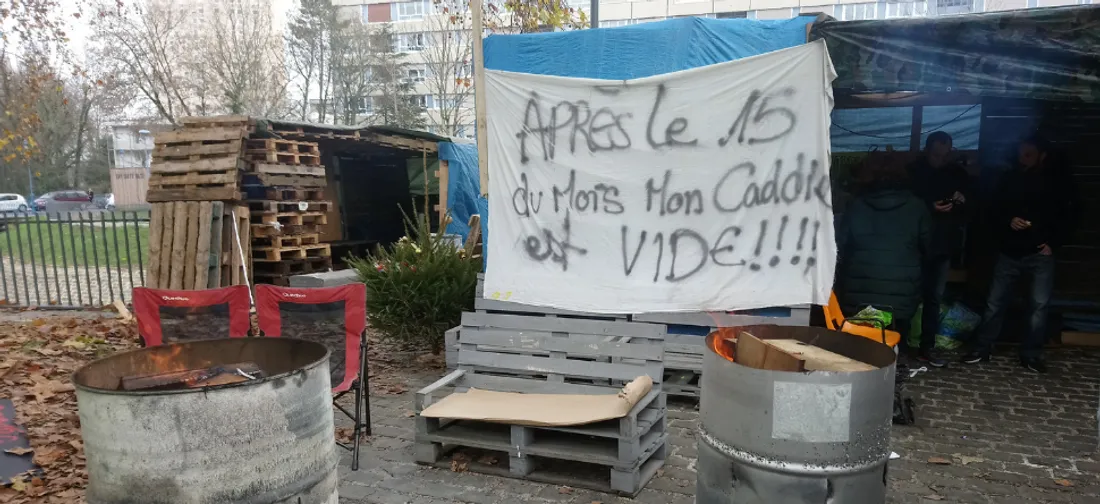 APRÈS le 15
du Mois Mon Caddie
est VIDE!!!!
Quechua
Quechua